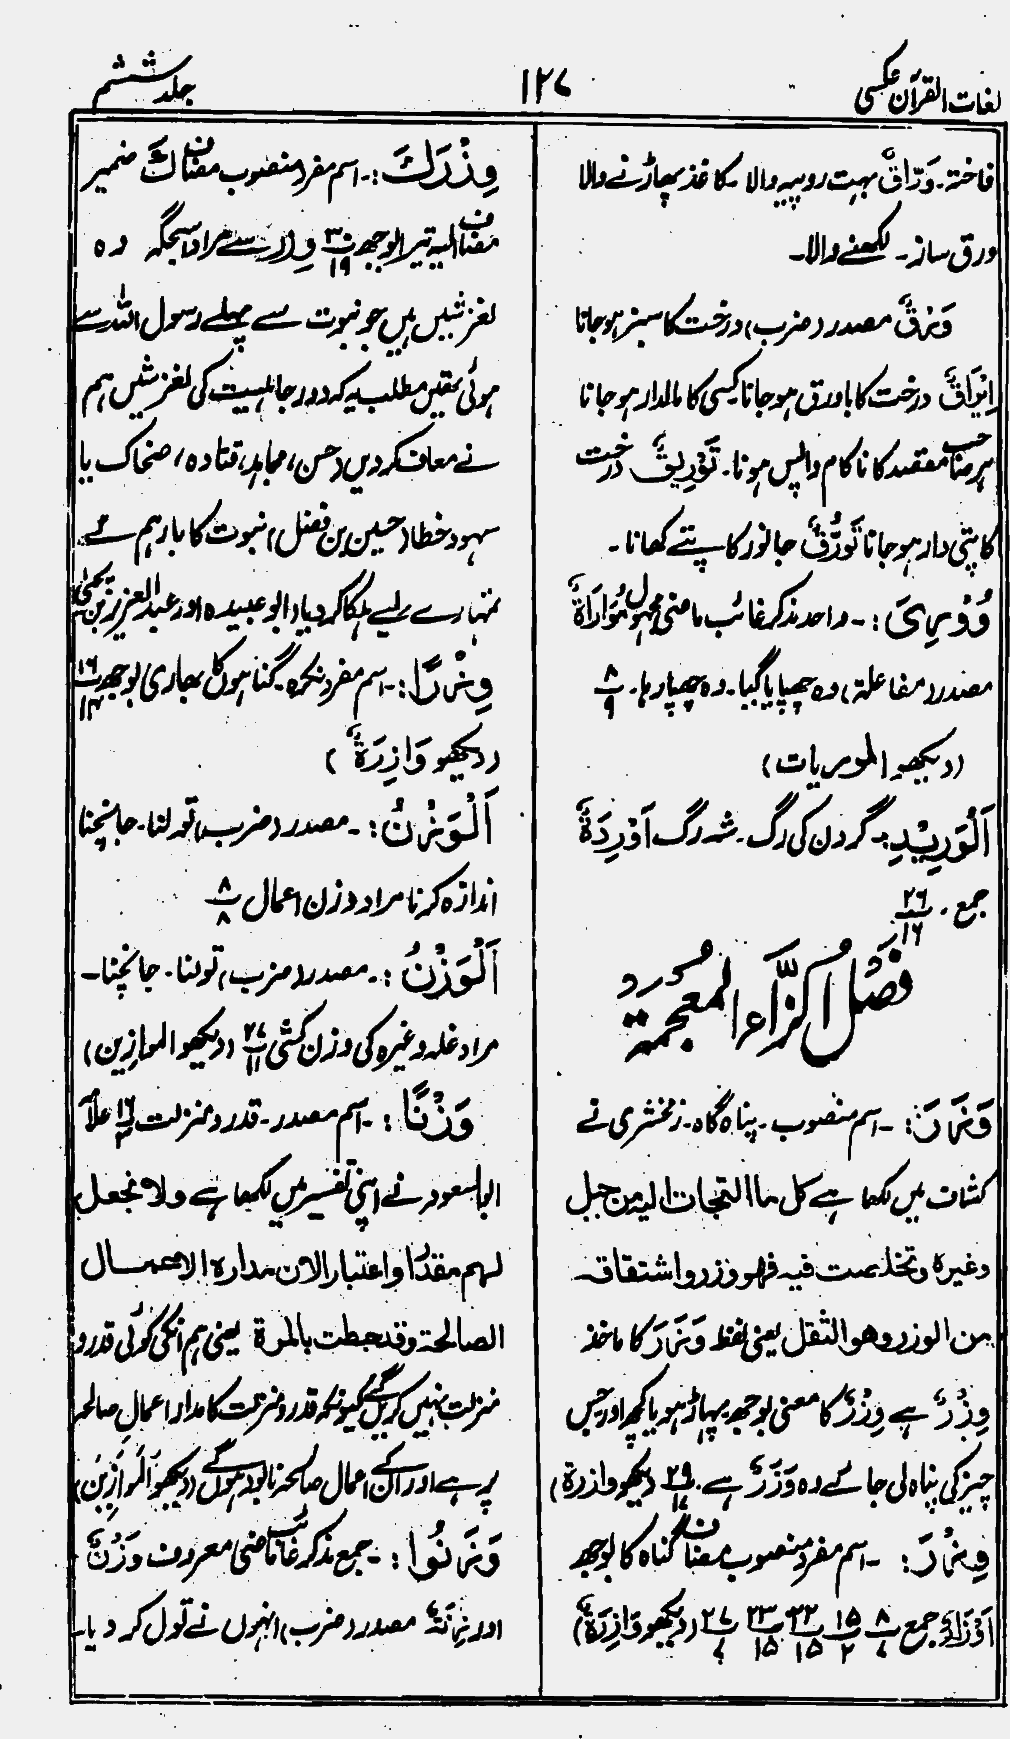 لغات القرآن عکسی
۱۲۷
جلد ششم
فاختہ۔ وَرَّاقٌ بہت روپیہ والا۔ کاغذ پھاڑنے والا
ورق ساز۔ لکھنے والا۔
وَرْقٌ مصدر (ضرب) درخت کا سبز ہو جانا
اِیْرَاقٌ درخت کا باورق ہو جانا کسی کا مالدار ہو جانا
ہر صاحب مقصد کا ناکام واپس ہونا۔ تَوْرِیْقٌ درخت
کا پتی دار ہو جانا تَوَرُّقٌ جانور کا پتے کھانا۔
وُوْرِیَ :۔ واحد مذکر غائب ماضی مجہول مُوَارَاۃٌ
مصدر (مفاعلۃ) وہ چھپایا گیا۔ وہ چھپا رہا۔ ۸/۹
(دیکھو الموریات)
اَلْوَرِیْدِ :۔ گردن کی رگ۔ شہ رگ اَوْرِدَۃٌ
جمع۔ ۲۶/۱۶
فصل الزاء المعجمۃ
وَزَرَ :۔ اسم منصوب۔ پناہ گاہ۔ زمخشری نے
کشاف میں لکھا ہے کل ما التجات الیہ من جبل
وغیرہ وتخلصت فیہ فہو وزر واشتقاقہ
من الوزر وھو الثقل یعنی لفظ وَزَرَ کا ماخذ
وِزْرٌ ہے وِزْرٌ کا معنی بوجھ پہاڑ ہو یا کچھ اور جس
چیز کی پناہ لی جائے وہ وَزَرٌ ہے۔ ۲۹/۱۷ (دیکھو وازرۃ)
وِزْرَ :۔ اسم مفرد منصوب مضاف گناہ کا بوجھ
اَوْزَارٌ جمع ۸/۷ ۱۵/۲ ۲۲/۱۵ ۲۳/۱۵ ۲۷/۷ (دیکھو وَازِرَۃٌ)
وِزْرَكَ :۔ اسم مفرد منصوب مضاف كَ ضمیر
مضاف الیہ تیرا بوجھ ۳۰/۱۹ وزر سے مراد اس جگہ وہ
لغزشیں ہیں جو نبوت سے پہلے رسول اللہ سے
ہوئی تھیں مطلب یہ کہ دور جاہلیت کی لغزشیں ہم
نے معاف کر دیں (حسن، مجاہد، قتادہ، ضحاک) یا
سہو و خطا (حسین بن فضل) نبوت کا بار ہم نے
تمہارے لیے ہلکا کر دیا (ابو عبیدہ اور عبد العزیز بن یحییٰ)
وِزْرًا :۔ اسم مفرد نکرہ۔ گناہوں کا بھاری بوجھ ۱۶/۱۴
(دیکھو وَازِرَۃٌ)
اَلْوَزْنُ :۔ مصدر (ضرب) تولنا۔ جانچنا
اندازہ کرنا مراد وزن اعمال ۸/۸
اَلْوَزْنَ :۔ مصدر (ضرب) تولنا۔ جانچنا۔
مراد غلہ وغیرہ کی وزن کشی ۲۷/۱۱ (دیکھو الموازین)
وَزْنًا :۔ اسم مصدر۔ قدر و منزلت ۱۶/۳ علامہ
ابو السعود نے اپنی تفسیر میں لکھا ہے ولا نجعل
لہم مقدارا واعتبارا لان مدارہ الاعمال
الصالحۃ وقد حبطت بالمرۃ یعنی ہم انکی کوئی قدر و
منزلت نہیں کریں گے کیونکہ قدر و منزلت کا مدار اعمالِ صالحہ
پر ہے اور ان کے اعمال صالحہ نابود ہوں گے (دیکھو الْمَوَازِیْن)
وَزَنُوْا :۔ جمع مذکر غائب ماضی معروف وَزْنٌ
اور زِنَۃٌ مصدر (ضرب) انہوں نے تول کر دیا۔